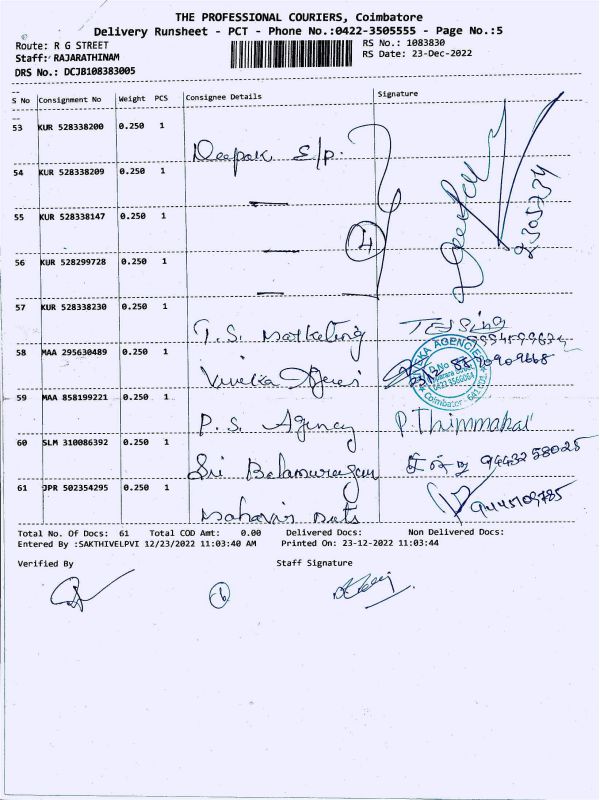 THE PROFESSIONAL COURIERS, Coimbatore
Delivery Runsheet - PCT - Phone No.:0422-3505555 - Page No.:5
Route: R G STREET
RS No.: 1083830
Staff: RAJARATHINAM
RS Date: 23-Dec-2022
DRS No.: DCJB108383005
S No Consignment No Weight PCS Consignee Details Signature
53 KUR 528338200 0.250 1 Deepak E/p.
54 KUR 528338209 0.250 1 —
55 KUR 528338147 0.250 1 —
4
56 KUR 528299728 0.250 1 — —
57 KUR 528338230 0.250 1 T.S. Marketing
58 MAA 295630489 0.250 1 Viveka Agencies
59 MAA 858199221 0.250 1 P.S. Agency P. Thimmakai
60 SLM 310086392 0.250 1 Sri Balamurugan 9443258025
61 JPR 502354295 0.250 1 Mahavir Mats 9445109785
Total No. Of Docs: 61 Total COD Amt: 0.00 Delivered Docs: Non Delivered Docs:
Entered By :SAKTHIVELPVI 12/23/2022 11:03:40 AM Printed On: 23-12-2022 11:03:44
Verified By Staff Signature